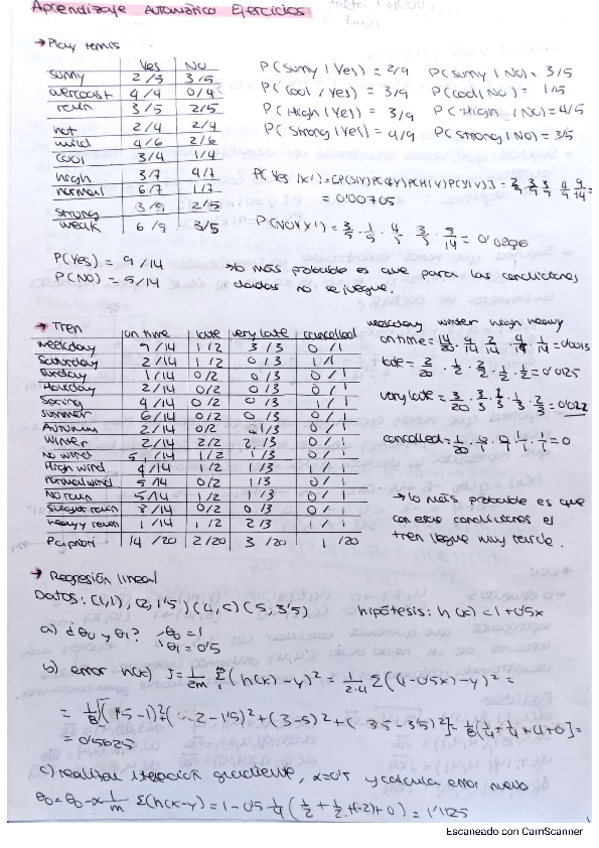 Aprendizaje Automático Ejercicios
→ Play tennis
Yes No
sunny 2/5 3/5
overcast 4/4 0/4
rain 3/5 2/5
hot 2/4 2/4
mild 4/6 2/6
cool 3/4 1/4
high 3/7 4/7
normal 6/7 1/7
strong 3/9 2/5
weak 6/9 3/5
P(Sunny | Yes) = 2/9 P(Sunny | No) = 3/5
P(Cool / Yes) = 3/9 P(cool | No) = 1/5
P(High | Yes) = 3/9 P(High | No) = 4/5
P(Strong | Yes) = 4/9 P(Strong | No) = 3/5
= 0'00705
P(YES) = 9/14
P(NO) = 5/14
→ lo más probable es que para las condiciones
dadas no se juegue.
→ Tren
on time late very late cancelled
weekday 9/14 1/2 3/3 0/1
Saturday 2/14 1/2 0/3 1/1
Sunday 1/14 0/2 0/3 0/1
Holiday 2/14 0/2 0/3 0/1
Spring 4/14 0/2 0/3 1/1
summer 6/14 0/2 0/3 0/1
Autumn 2/14 0/2 1/3 0/1
Winter 2/14 2/2 2/3 0/1
no wind 5/14 1/2 1/3 0/1
High wind 4/14 1/2 1/3 1/1
normal wind 5/14 0/2 1/3 0/1
No rain 5/14 1/2 1/3 0/1
8/14 0/2 0/3 0/1
heavy rain 1/14 1/2 2/3 1/1
14/20 2/20 3/20 1/20
weekday winter high heavy
on time = 14/20 · 9/14 · 2/14 · 4/14 · 1/14 = 0'0013
late = 2/20 · 1/2 · 2/2 · 1/2 · 1/2 = 0'0125
very late = 3/20 · 3/3 · 2/3 · 1/3 · 2/3 = 0'022
cancelled = 1/20 · 0/1 · 0/1 · 1/1 · 1/1 = 0
→ lo más probable es que
con esas condiciones el
tren llegue muy tarde.
→ Regresión lineal
Datos: (1,1), (2,1'5) (4,5) (5,3'5) hipótesis: h(x) = 1+0'5x
a) ¿θ0 y θ1? θ0 = 1
θ1 = 0'5
b) error h(x) J = 1/2m Σ(h(x)-y)² = 1/2·4 Σ((1-0'5x)-y)² =
= 0'5625
c) realizar iteración gradiente, α=0'5 y calcula error nuevo
θ0 = θ0 - α 1/m Σ(h(x-y) = 1-0'5 1/4 (1/2 + 1/2 +(-2)+0) = 1'1125
Escaneado con CamScanner